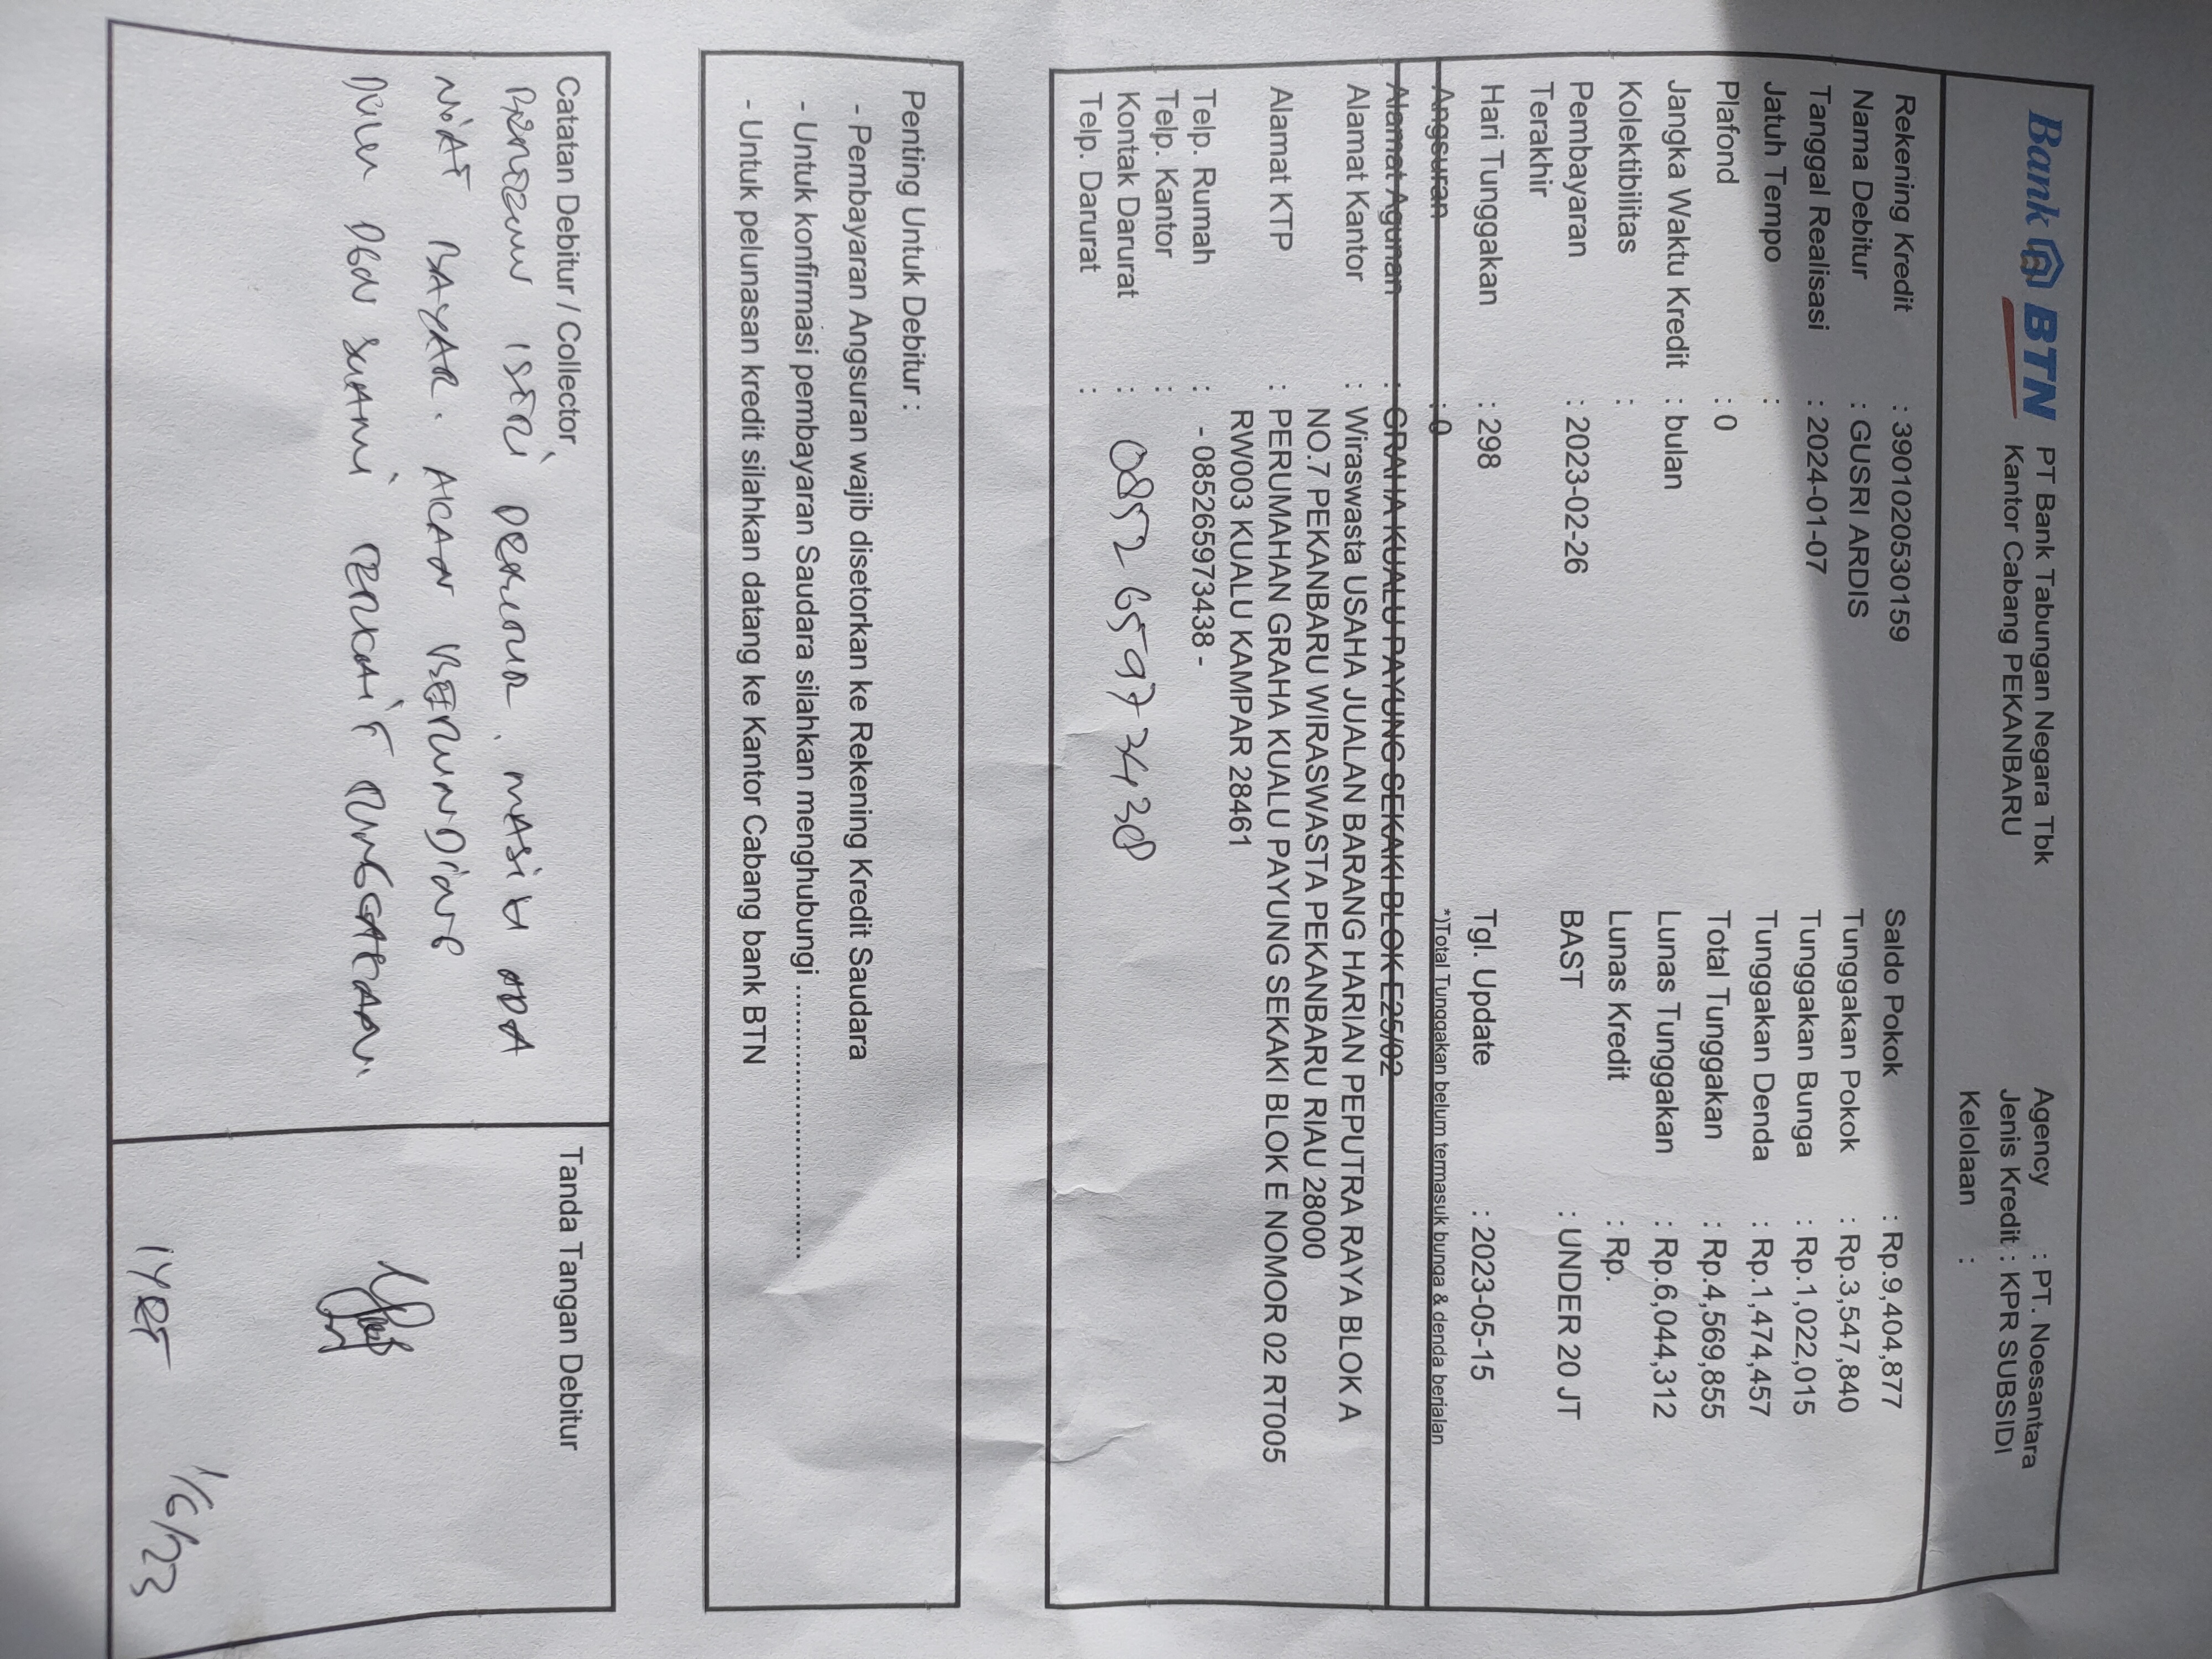 Bank BTN
PT Bank Tabungan Negara Tbk
Kantor Cabang PEKANBARU
Agency : PT. Noesantara
Jenis Kredit : KPR SUBSIDI
Kelolaan :
Rekening Kredit : 3901020530159
Nama Debitur : GUSRI ARDIS
Tanggal Realisasi : 2024-01-07
Jatuh Tempo :
Plafond : 0
Jangka Waktu Kredit : bulan
Kolektibilitas :
Pembayaran Terakhir : 2023-02-26
Hari Tunggakan : 298
Saldo Pokok : Rp.9,404,877
Tunggakan Pokok : Rp.3,547,840
Tunggakan Bunga : Rp.1,022,015
Tunggakan Denda : Rp.1,474,457
Total Tunggakan : Rp.4,569,855
Lunas Tunggakan : Rp.6,044,312
Lunas Kredit : Rp.
BAST : UNDER 20 JT
Tgl. Update : 2023-05-15
Angsuran : 0
*)Total Tunggakan belum termasuk bunga & denda berjalan
Alamat Agunan : GRAHA KUALU PAYUNG SEKAKI BLOK E25/02
Alamat Kantor : Wiraswasta USAHA JUALAN BARANG HARIAN PEPUTRA RAYA BLOK A
NO.7 PEKANBARU WIRASWASTA PEKANBARU RIAU 28000
Alamat KTP : PERUMAHAN GRAHA KUALU PAYUNG SEKAKI BLOK E NOMOR 02 RT005
RW003 KUALU KAMPAR 28461
Telp. Rumah : - 085265973438 -
Telp. Kantor :
Kontak Darurat : 0852 6597 3438
Telp. Darurat :
Penting Untuk Debitur :
- Pembayaran Angsuran wajib disetorkan ke Rekening Kredit Saudara
- Untuk konfirmasi pembayaran Saudara silahkan menghubungi ..............................
- Untuk pelunasan kredit silahkan datang ke Kantor Cabang bank BTN
Catatan Debitur / Collector
ISTRI DEBITUR. MASIH ADA
NIAT BAYAR. AKAN BERUNDING
DULU DGN SUAMI TERKAIT TUNGGAKAN
Tanda Tangan Debitur
1/6/23